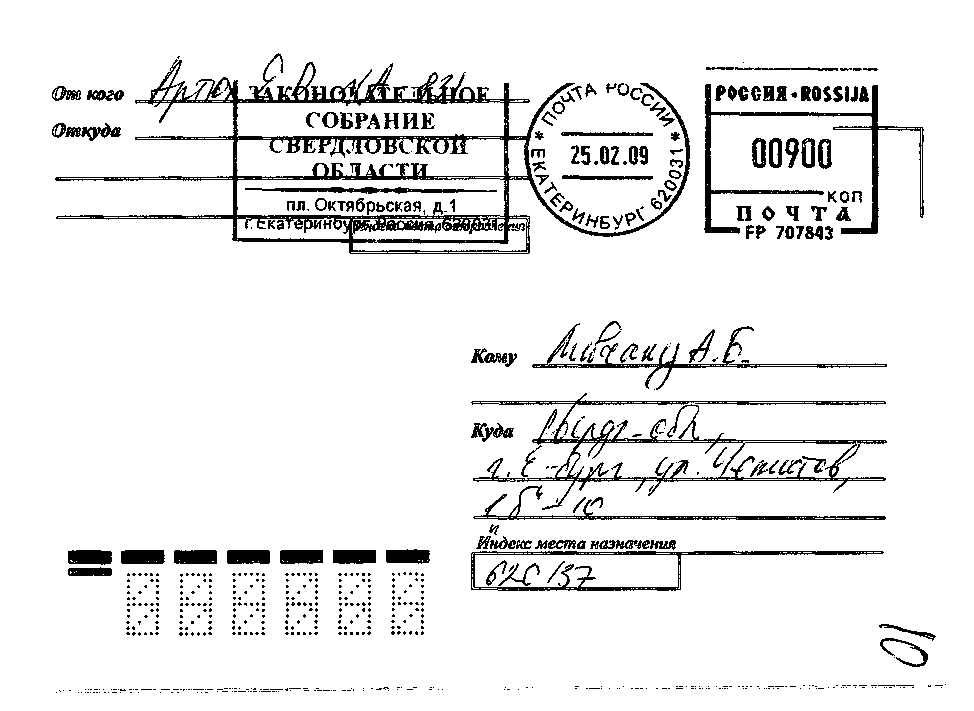 От кого Артюх Е. П.
ЗАКОНОДАТЕЛЬНОЕ
Откуда
СОБРАНИЕ
СВЕРДЛОВСКОЙ
ОБЛАСТИ
пл. Октябрьская, д.1
г.Екатеринбург, Россия, 620031
Индекс места отправления
* ПОЧТА РОССИИ *
25.02.09
ЕКАТЕРИНБУРГ 620031
РОССИЯ·ROSSIJA
00900
КОП
ПОЧТА
FP 707843
Кому Мивчаку А.Б.
Куда Свердл-обл,
г. Е-бург, ул. Чекистов,
1 "б" - 10
Индекс места назначения
620137
10